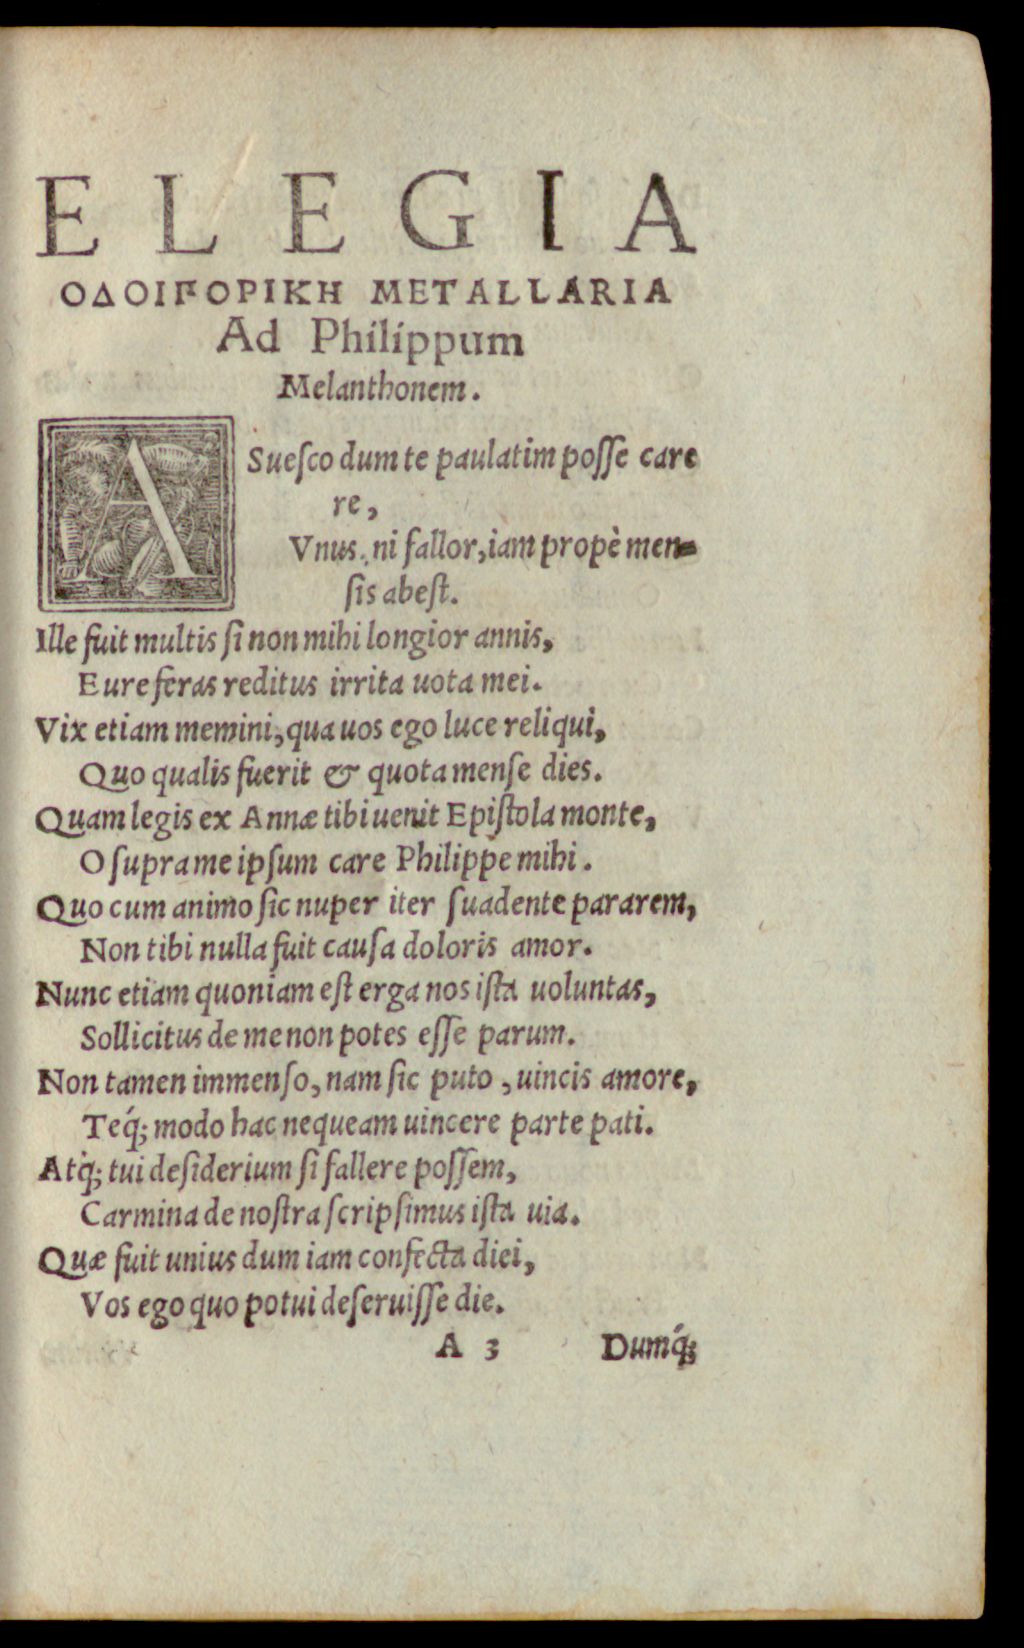 ELEGIA
ΟΔΟΙΠΟΡΙΚΗ METALLARIA
Ad Philippum
Melanthonem.
ASueſco dum te paulatim poſſe care
re,
Vnus, ni fallor, iam propè men-
ſis abeſt.
Ille fuit multis ſi non mihi longior annis,
Eure feras reditus irrita uota mei.
Vix etiam memini, qua uos ego luce reliqui,
Quo qualis fuerit & quota menſe dies.
Quam legis ex Annæ tibi uenit Epiſtola monte,
O ſupra me ipſum care Philippe mihi.
Quo cum animo ſic nuper iter ſuadente pararem,
Non tibi nulla fuit cauſa doloris amor.
Nunc etiam quoniam eſt erga nos iſta uoluntas,
Sollicitus de me non potes eſſe parum.
Non tamen immenſo, nam ſic puto, uincis amore,
Teq́; modo hac nequeam uincere parte pati.
Atq́; tui deſiderium ſi fallere poſſem,
Carmina de noſtra ſcripſimus iſta uia.
Quæ fuit unius dum iam confecta diei,
Vos ego quo potui deſeruiſſe die.
A 3 Dumq́;